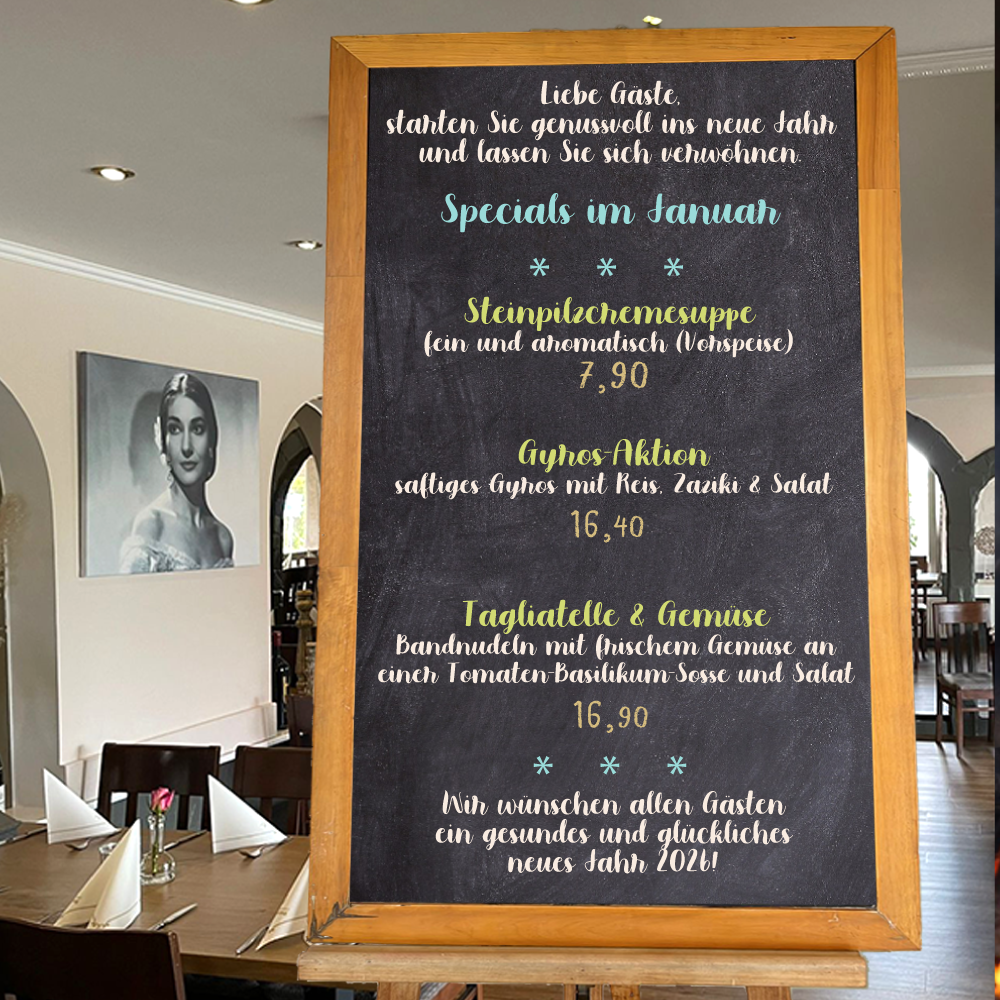 Liebe Gäste,
starten Sie genussvoll ins neue Jahr
und lassen Sie sich verwöhnen.
Specials im Januar
* * *
Steinpilzcremesuppe
fein und aromatisch (Vorspeise)
7,90
Gyros-Aktion
saftiges Gyros mit Reis, Zaziki & Salat
16,40
Tagliatelle & Gemüse
Bandnudeln mit frischem Gemüse an
einer Tomaten-Basilikum-Sosse und Salat
16,90
* * *
Wir wünschen allen Gästen
ein gesundes und glückliches
neues Jahr 2026!